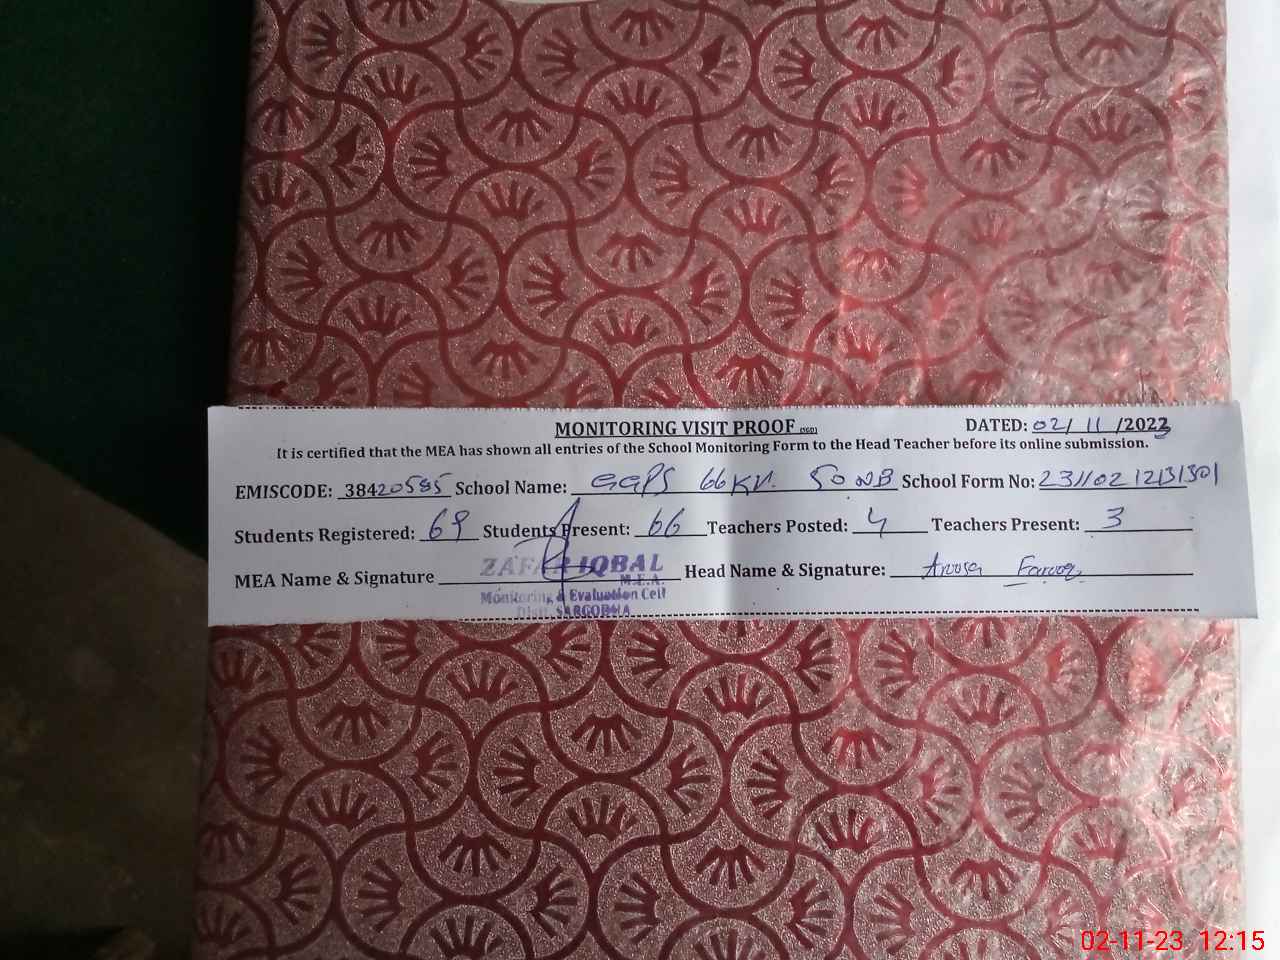 MONITORING VISIT PROOF (SGD) DATED: 02/11/2023
It is certified that the MEA has shown all entries of the School Monitoring Form to the Head Teacher before its online submission.
EMISCODE: 38420585 School Name: GGPS 66 KV. 50 NB School Form No:
Students Registered: 69 Students Present: 66 Teachers Posted: 4 Teachers Present: 3
ZAFAR IQBAL
MEA Name & Signature Head Name & Signature: Aroosa Farooq
M.E.A.
Monitoring & Evaluation Cell
Distt. SARGODHA
02-11-23 12:15